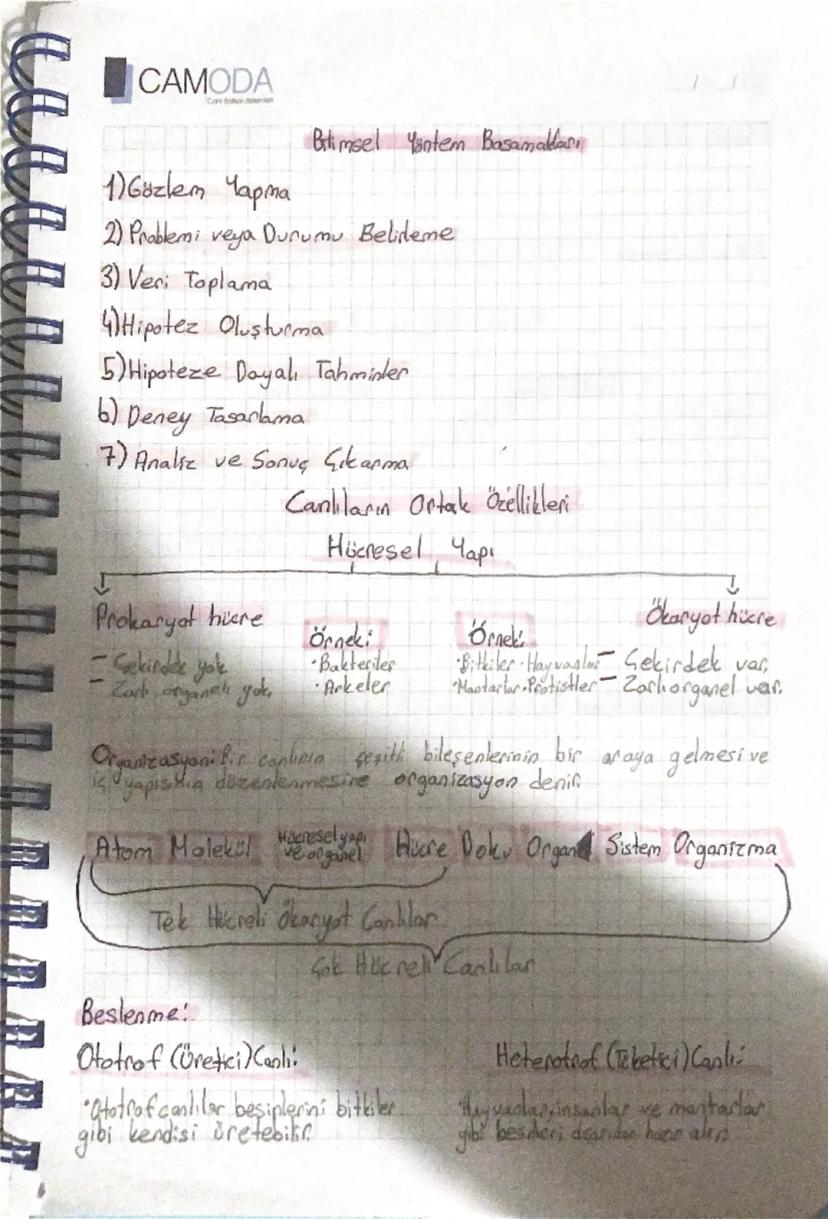 CAMODA
Bilimsel Yöntem Basamakları
1) Gözlem Yapma
2) Problemi veya Durumu Belirleme
3) Veri Toplama
4) Hipotez Oluşturma
5) Hipoteze Dayalı Tahminler
6) Deney Tasarlama
7) Analiz ve Sonuç Çıkarma
Canlıların Ortak Özellikleri
Hücresel Yapı
Prokaryot hücre
- Çekirdek yok
- Zarlı organeli yok
Örnek:
• Bakteriler
• Arkeler
Örnek:
• Bitkiler • Hayvanlar
• Mantarlar • Protistler
Ökaryot hücre
- Çekirdek var.
- Zarlı organel var.
Organizasyon: Bir canlının çeşitli bileşenlerinin bir araya gelmesi ve
iç yapısının düzenlenmesine organizasyon denir.
Atom Molekül Hücresel yapı ve organel Hücre Doku Organ Sistem Organizma
Tek Hücreli Ökaryot Canlılar
Çok Hücreli Canlılar
Beslenme:
Ototrof (Üretici) Canlı:
• Ototrof canlılar besiplerini bitkiler
gibi kendisi üretebilir.
Heterotrof (Tüketici) Canlı:
• Hayvanlar, insanlar ve mantarlar
gibi besinleri dışarıdan hazır alır.